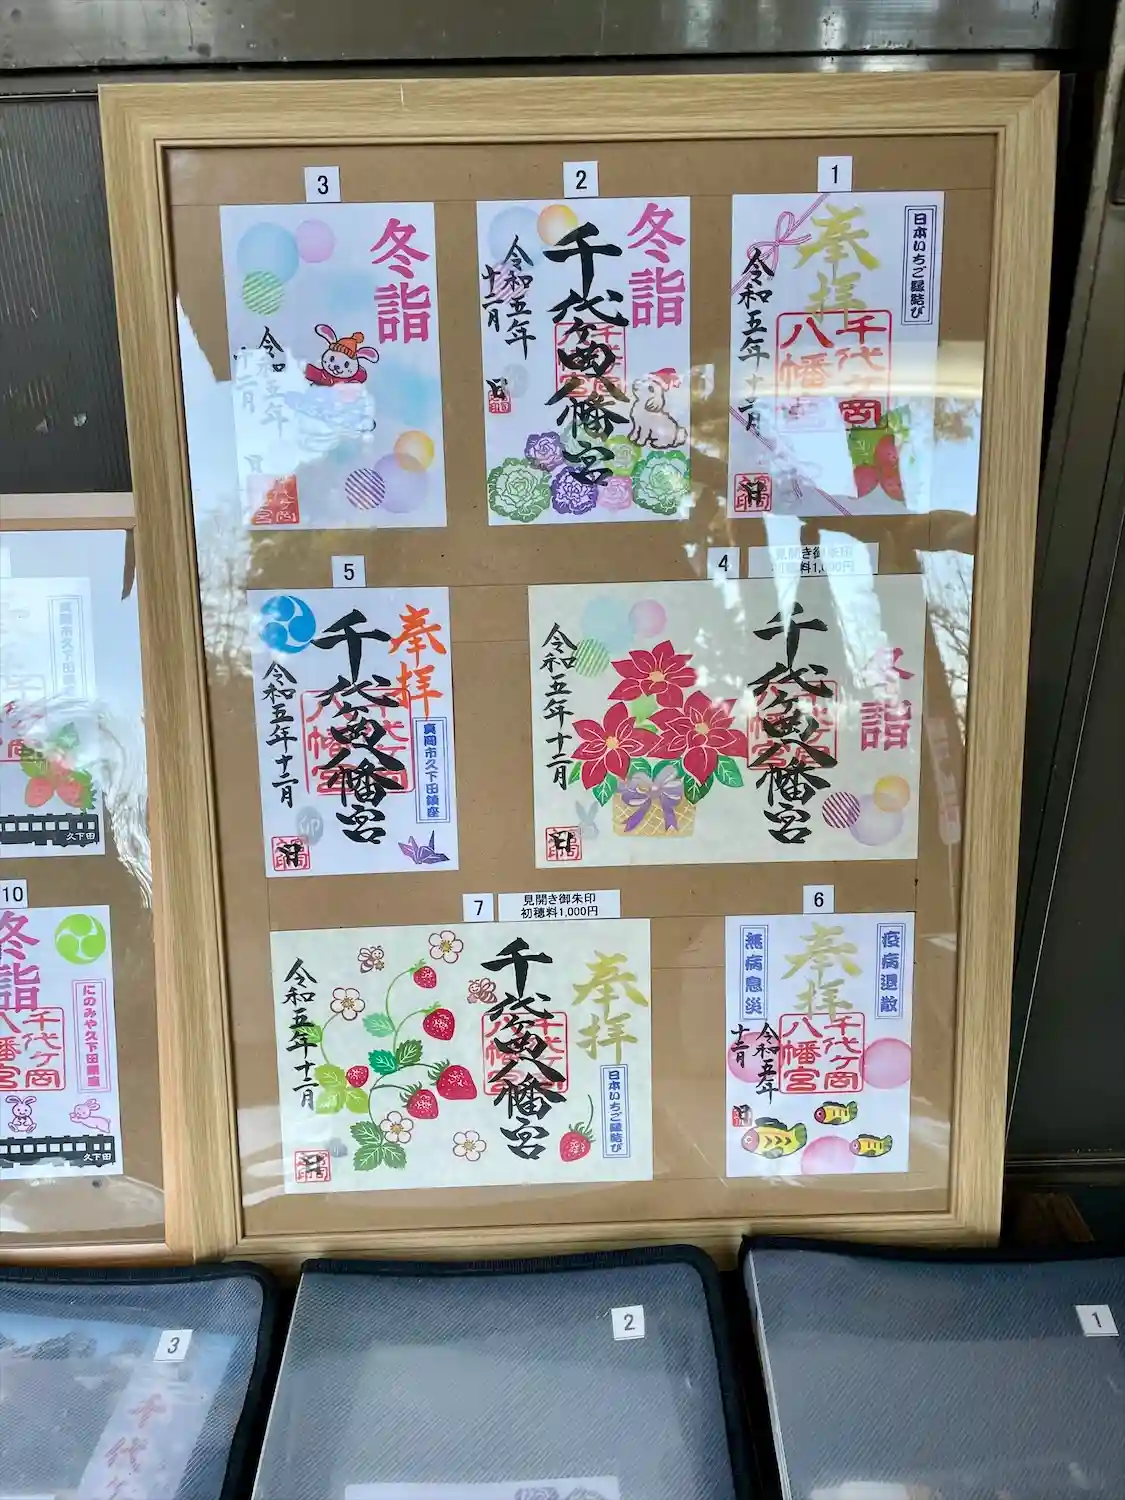 1
日本いちご縁結び
奉拝
千代ヶ岡
八幡宮
令和五年十二月
日
2
冬詣
千代ヶ岡八幡宮
令和五年
十二月
日
3
冬詣
令和五年
十二月
日
千代ヶ岡
八幡宮
4
見開き御朱印
初穂料1,000円
冬詣
千代ヶ岡八幡宮
令和五年十二月
日
5
奉拝
真岡市久下田鎮座
千代ヶ岡八幡宮
千代ヶ岡
八幡宮
令和五年十二月
卯
日
6
疫病退散
奉拝
無病息災
千代ヶ岡
八幡宮
令和五年
十二月
日
7
見開き御朱印
初穂料1,000円
奉拝
日本いちご縁結び
千代ヶ岡八幡宮
令和五年十二月
日
真岡市久下田鎮座
久下田
10
冬詣
にのみや久下田鎮座
千代ヶ岡
八幡宮
久下田
1
2
3
千代ヶ